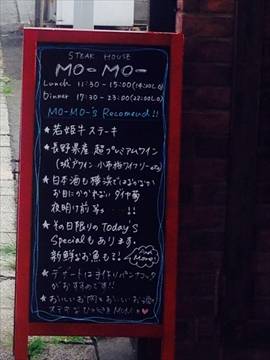 STEAK HOUSE
MO-MO-
Lunch 11:30-15:00(14:00L.O)
Dinner 17:30-23:00(22:00L.O)
MO-MO-'s Recomend!!
★若姫牛ステーキ
★長野県産 超プレミアムワイン
★日本酒も横浜ではなかなか
お目にかかれないダイヤ菊
夜明け前 等 !!
★その日限りのToday's
Specialもあります。
新鮮なお魚も!!
★デザートは手作りパンナコッタ
がおすすめです!!
★おいしいお肉とおいしいお酒で
ステキなひとときを